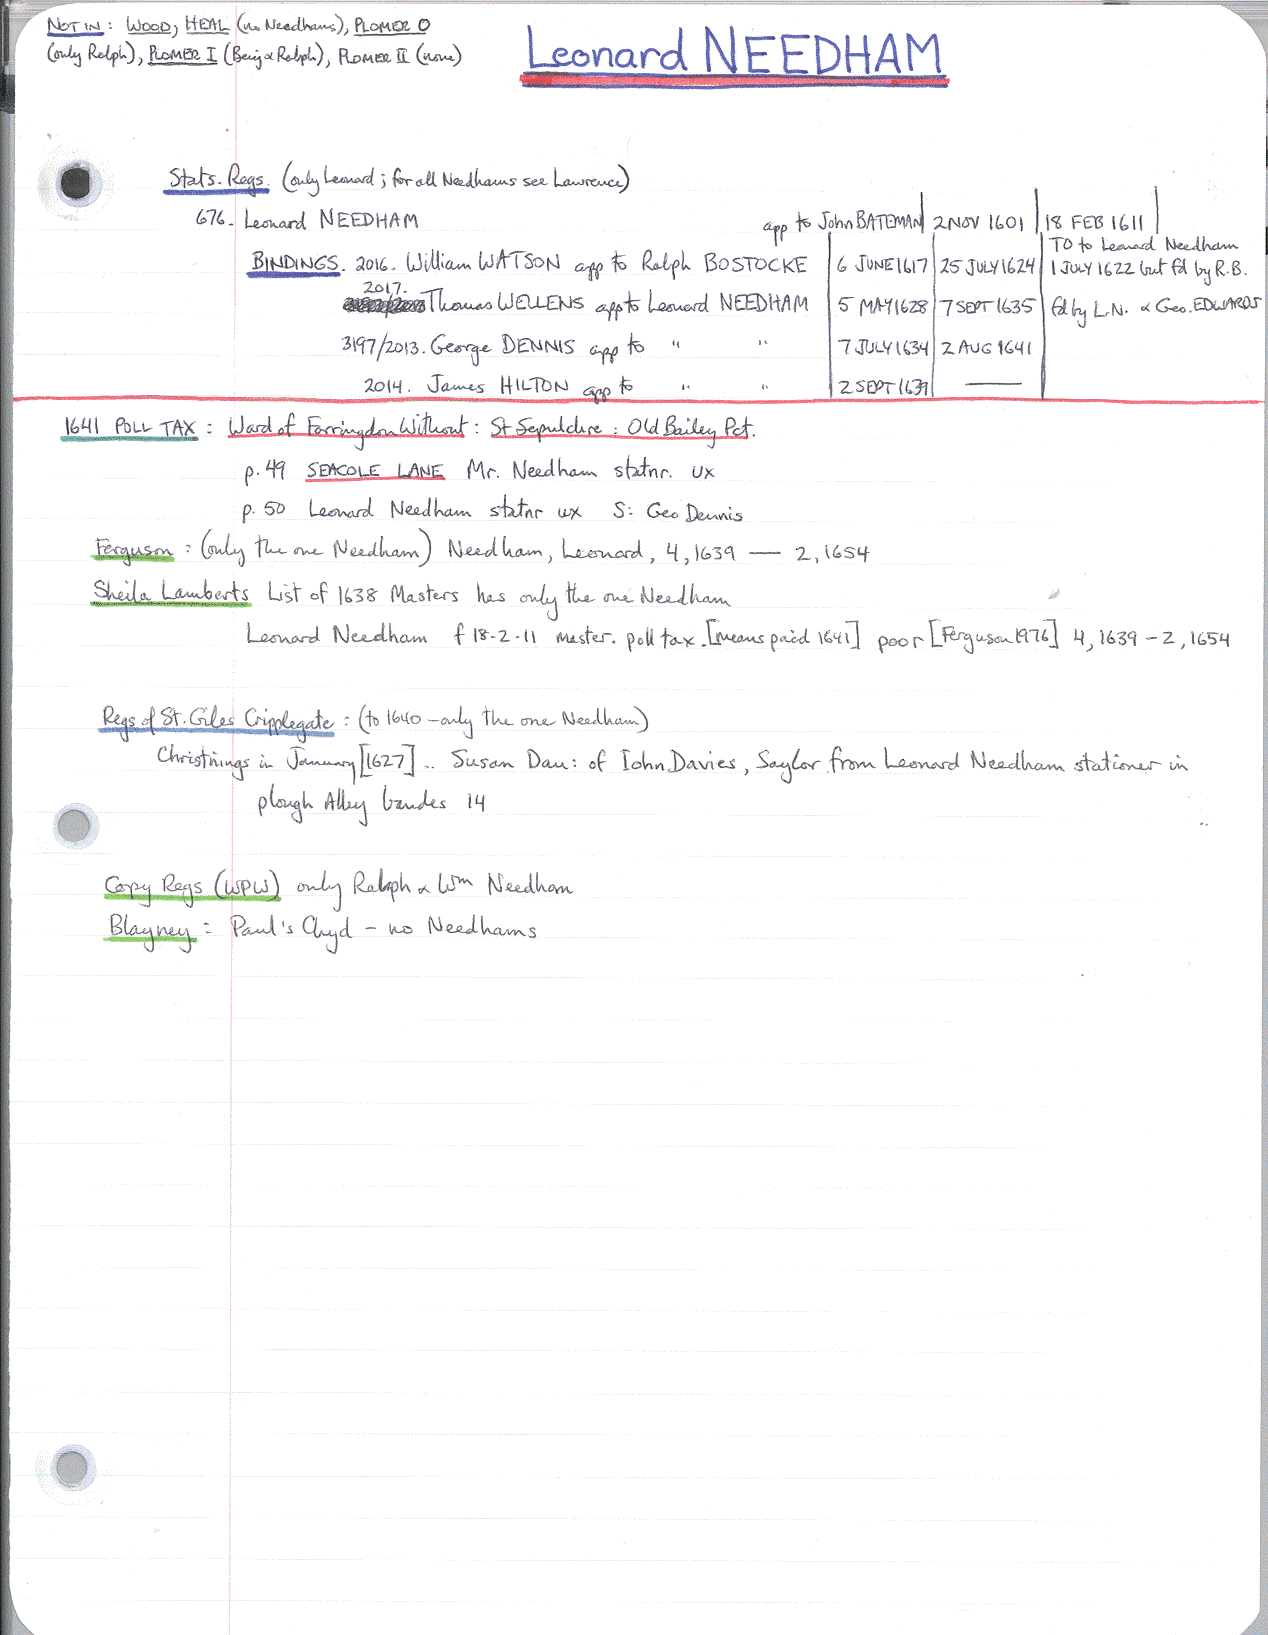 NOT IN : WOOD, HEAL (no Needhams), PLOMER O
(only Ralph), PLOMER I (Benj & Ralph), PLOMER II (none)
Leonard NEEDHAM
Stats. Regs. (only Leonard ; for all Needhams see Lawrence)
676. Leonard NEEDHAM app to John BATEMAN 2 NOV 1601 18 FEB 1611
TO to Leonard Needham
BINDINGS. 2016. William WATSON app to Ralph BOSTOCKE 6 JUNE 1617 25 JULY 1624 1 JULY 1622 but fd by R.B.
2017.
Thomas WELLENS app to Leonard NEEDHAM 5 MAY 1628 7 SEPT 1635 fd by L.N. & Geo. EDWARDS
3197/2013. George DENNIS app to " " 7 JULY 1634 2 AUG 1641
2014. James HILTON app to " " 2 SEPT 1639 ———
1641 POLL TAX : Ward of Farringdon Without : St Sepulchre : Old Bailey Pct.
p. 49 SEACOLE LANE Mr. Needham statnr. ux
p. 50 Leonard Needham statnr ux S: Geo Dennis
Ferguson : (only the one Needham) Needham, Leonard, 4, 1639 — 2, 1654
Sheila Lamberts List of 1638 Masters has only the one Needham
Leonard Needham f 18-2-11 master. poll tax. [means paid 1641] poor [Ferguson 1976] 4, 1639 - 2, 1654
Regs of St. Giles Cripplegate : (to 1640 - only the one Needham)
Christnings in January [1627] .. Susan Dau: of Iohn Davies, Saylor from Leonard Needham stationer in
plough Alley 14
Copy Regs (WPW) only Ralph & Wm Needham
Blayney : Paul's Chyd - no Needhams